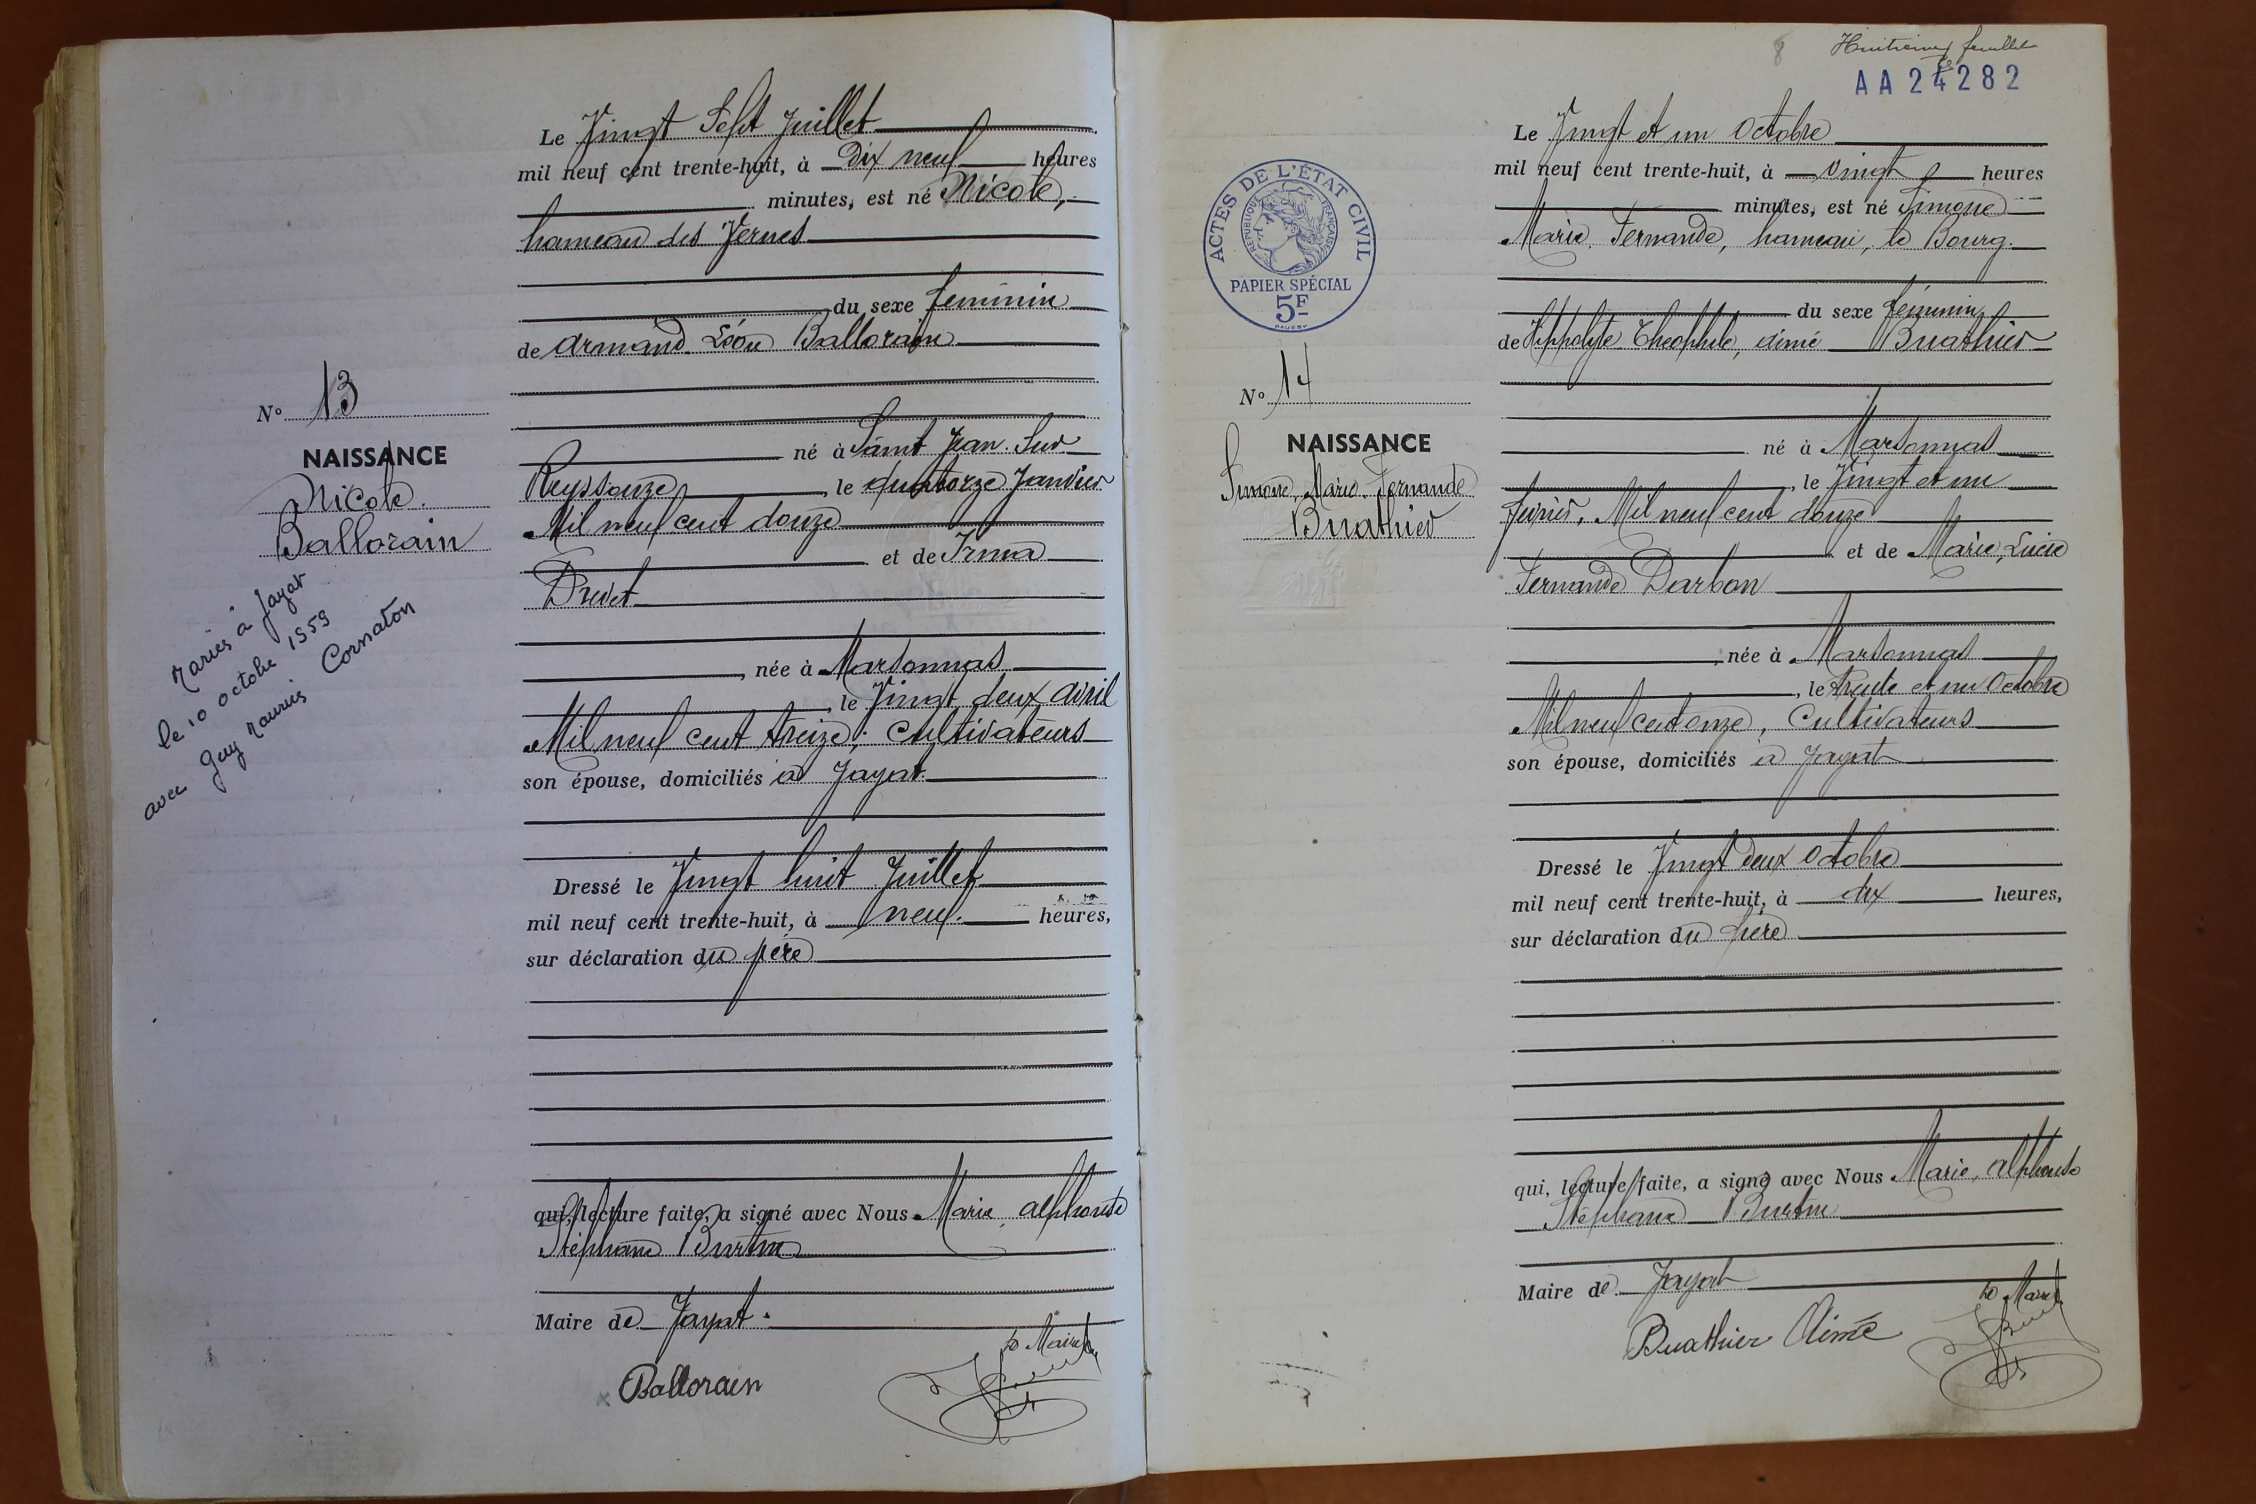 Le Vingt Sept Juillet
mil neuf cent trente-huit, à dix neuf heures
minutes, est né Nicole,
hameau des Vernes
du sexe féminin
de Armand Léon Ballorain
né à Saint Jean-Sur
Reyssouze, le quatorze Janvier
Mil neuf cent douze
et de Irma
Drevet
, née à Marsonnas
, le Vingt deux Avril
Mil neuf cent treize, Cultivateurs
son épouse, domiciliés à Jayat.
Dressé le Vingt huit Juillet
mil neuf cent trente-huit, à neuf heures,
sur déclaration du père
qui, lecture faite, a signé avec Nous Marie, Alphonse
Stéphane Burtin
Maire de Jayat.
Le Maire
Ballorain
No 13
NAISSANCE
Nicole
Ballorain
Mariés à Jayat
le 10 octobre 1959
avec Guy Maurice Cornaton
8
Huitième feuillet
AA 24282
ACTES DE L'ÉTAT CIVIL
RÉPUBLIQUE FRANÇAISE
PAPIER SPÉCIAL
5F
No 14
NAISSANCE
Simone, Marie, Fernande
Buathier
Le Vingt et un Octobre
mil neuf cent trente-huit, à vingt heures
minutes, est né Simone
Marie, Fernande, hameau, le Bourg.
du sexe féminin
de Hippolyte Théophile, Aimé Buathier
né à Marsonnas
, le Vingt et un
février, Mil neuf cent douze
et de Marie, Lucie
Fernande Darbon
, née à Marsonnas
, le trente et un Octobre
Mil neuf cent onze, Cultivateurs
son épouse, domiciliés à Jayat
Dressé le Vingt deux Octobre
mil neuf cent trente-huit, à dix heures,
sur déclaration du père
qui, lecture faite, a signé avec Nous Marie, Alphonse
Stéphane Burtin
Maire de Jayat
Le Maire
Buathier Aimé